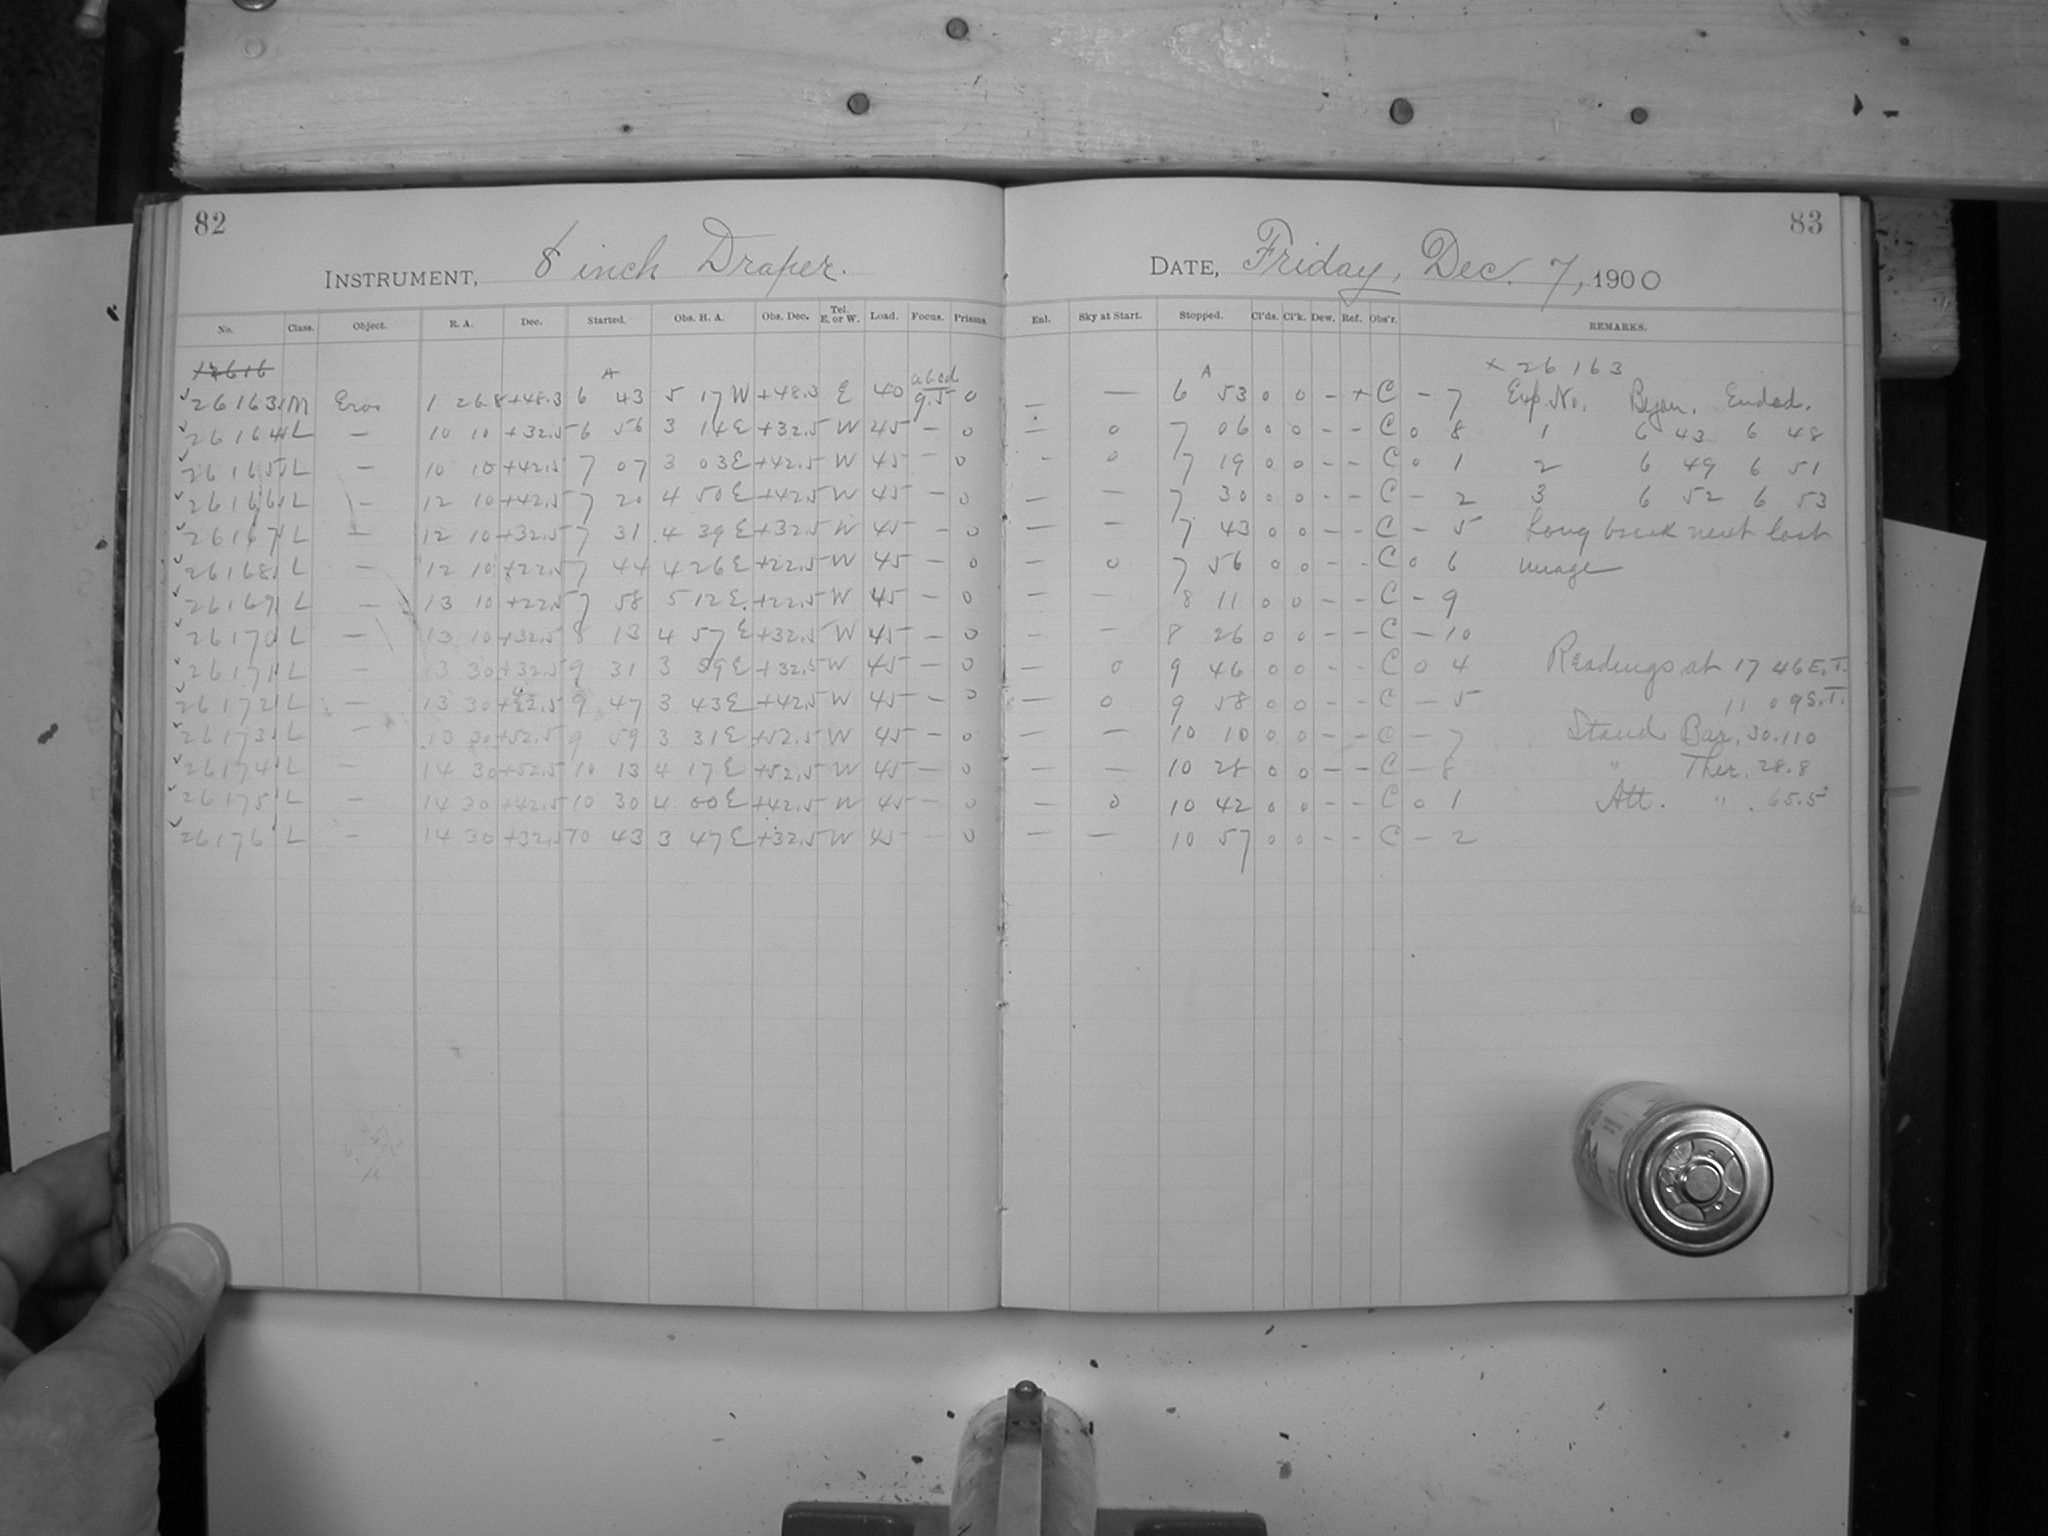 82
INSTRUMENT, 8 inch Draper.
No. Class. Object. R. A. Dec. Started. Obs. H. A. Obs. Dec. Tel. E. or W. Load. Focus. Prisms.
26163 M Eros 1 26.8 +48.3 6 A 43 5 17 W +48.3 E 40 abcd 9.5 0
26164 L — 10 10 +32.5 6 56 3 14 E +32.5 W 45 — 0
26165 L — 10 10 +42.5 7 07 3 03 E +42.5 W 45 — 0
26166 L — 12 10 +42.5 7 20 4 50 E +42.5 W 45 — 0
26167 L — 12 10 +32.5 7 31 4 39 E +32.5 W 45 — 0
26168 L — 12 10 +22.5 7 44 4 26 E +22.5 W 45 — 0
26169 L — 13 10 +22.5 7 58 5 12 E +22.5 W 45 — 0
26170 L — 13 10 +32.5 8 13 4 57 E +32.5 W 45 — 0
26171 L — 13 30 +32.5 9 31 3 59 E +32.5 W 45 — 0
26172 L — 13 30 +42.5 9 47 3 43 E +42.5 W 45 — 0
26173 L — 13 30 +52.5 9 59 3 31 E +52.5 W 45 — 0
26174 L — 14 30 +52.5 10 13 4 17 E +52.5 W 45 — 0
26175 L — 14 30 +42.5 10 30 4 00 E +42.5 W 45 — 0
26176 L — 14 30 +32.5 10 43 3 47 E +32.5 W 45 — 0
83
DATE, Friday, Dec. 7, 1900
Enl. Sky at Start. Stopped. Cl'ds. Cl'k. Dew. Ref. Obs'r. REMARKS.
× 26163
— — 6 A 53 0 0 - + C - 7 Exp. No. Began. Ended.
— 0 7 06 0 0 - - C 0 8 1 6 43 6 48
- 0 7 19 0 0 - - C 0 1 2 6 49 6 51
— — 7 30 0 0 - - C - 2 3 6 52 6 53
— — 7 43 0 0 - - C - 5 Long break next last
— 0 7 56 0 0 - - C 0 6 image
— — 8 11 0 0 - - C - 9
— — 8 26 0 0 - - C - 10
— 0 9 46 0 0 - - C 0 4 Readings at 17 46 E.T.
— 0 9 58 0 0 - - C - 5 11 09 S.T.
— — 10 10 0 0 - - C - 7 Stand Bar. 30.110
— — 10 28 0 0 - - C - 8 " Ther. 28.8
— 0 10 42 0 0 - - C 0 1 Att. " . 65.5
— — 10 57 0 0 - - C - 2